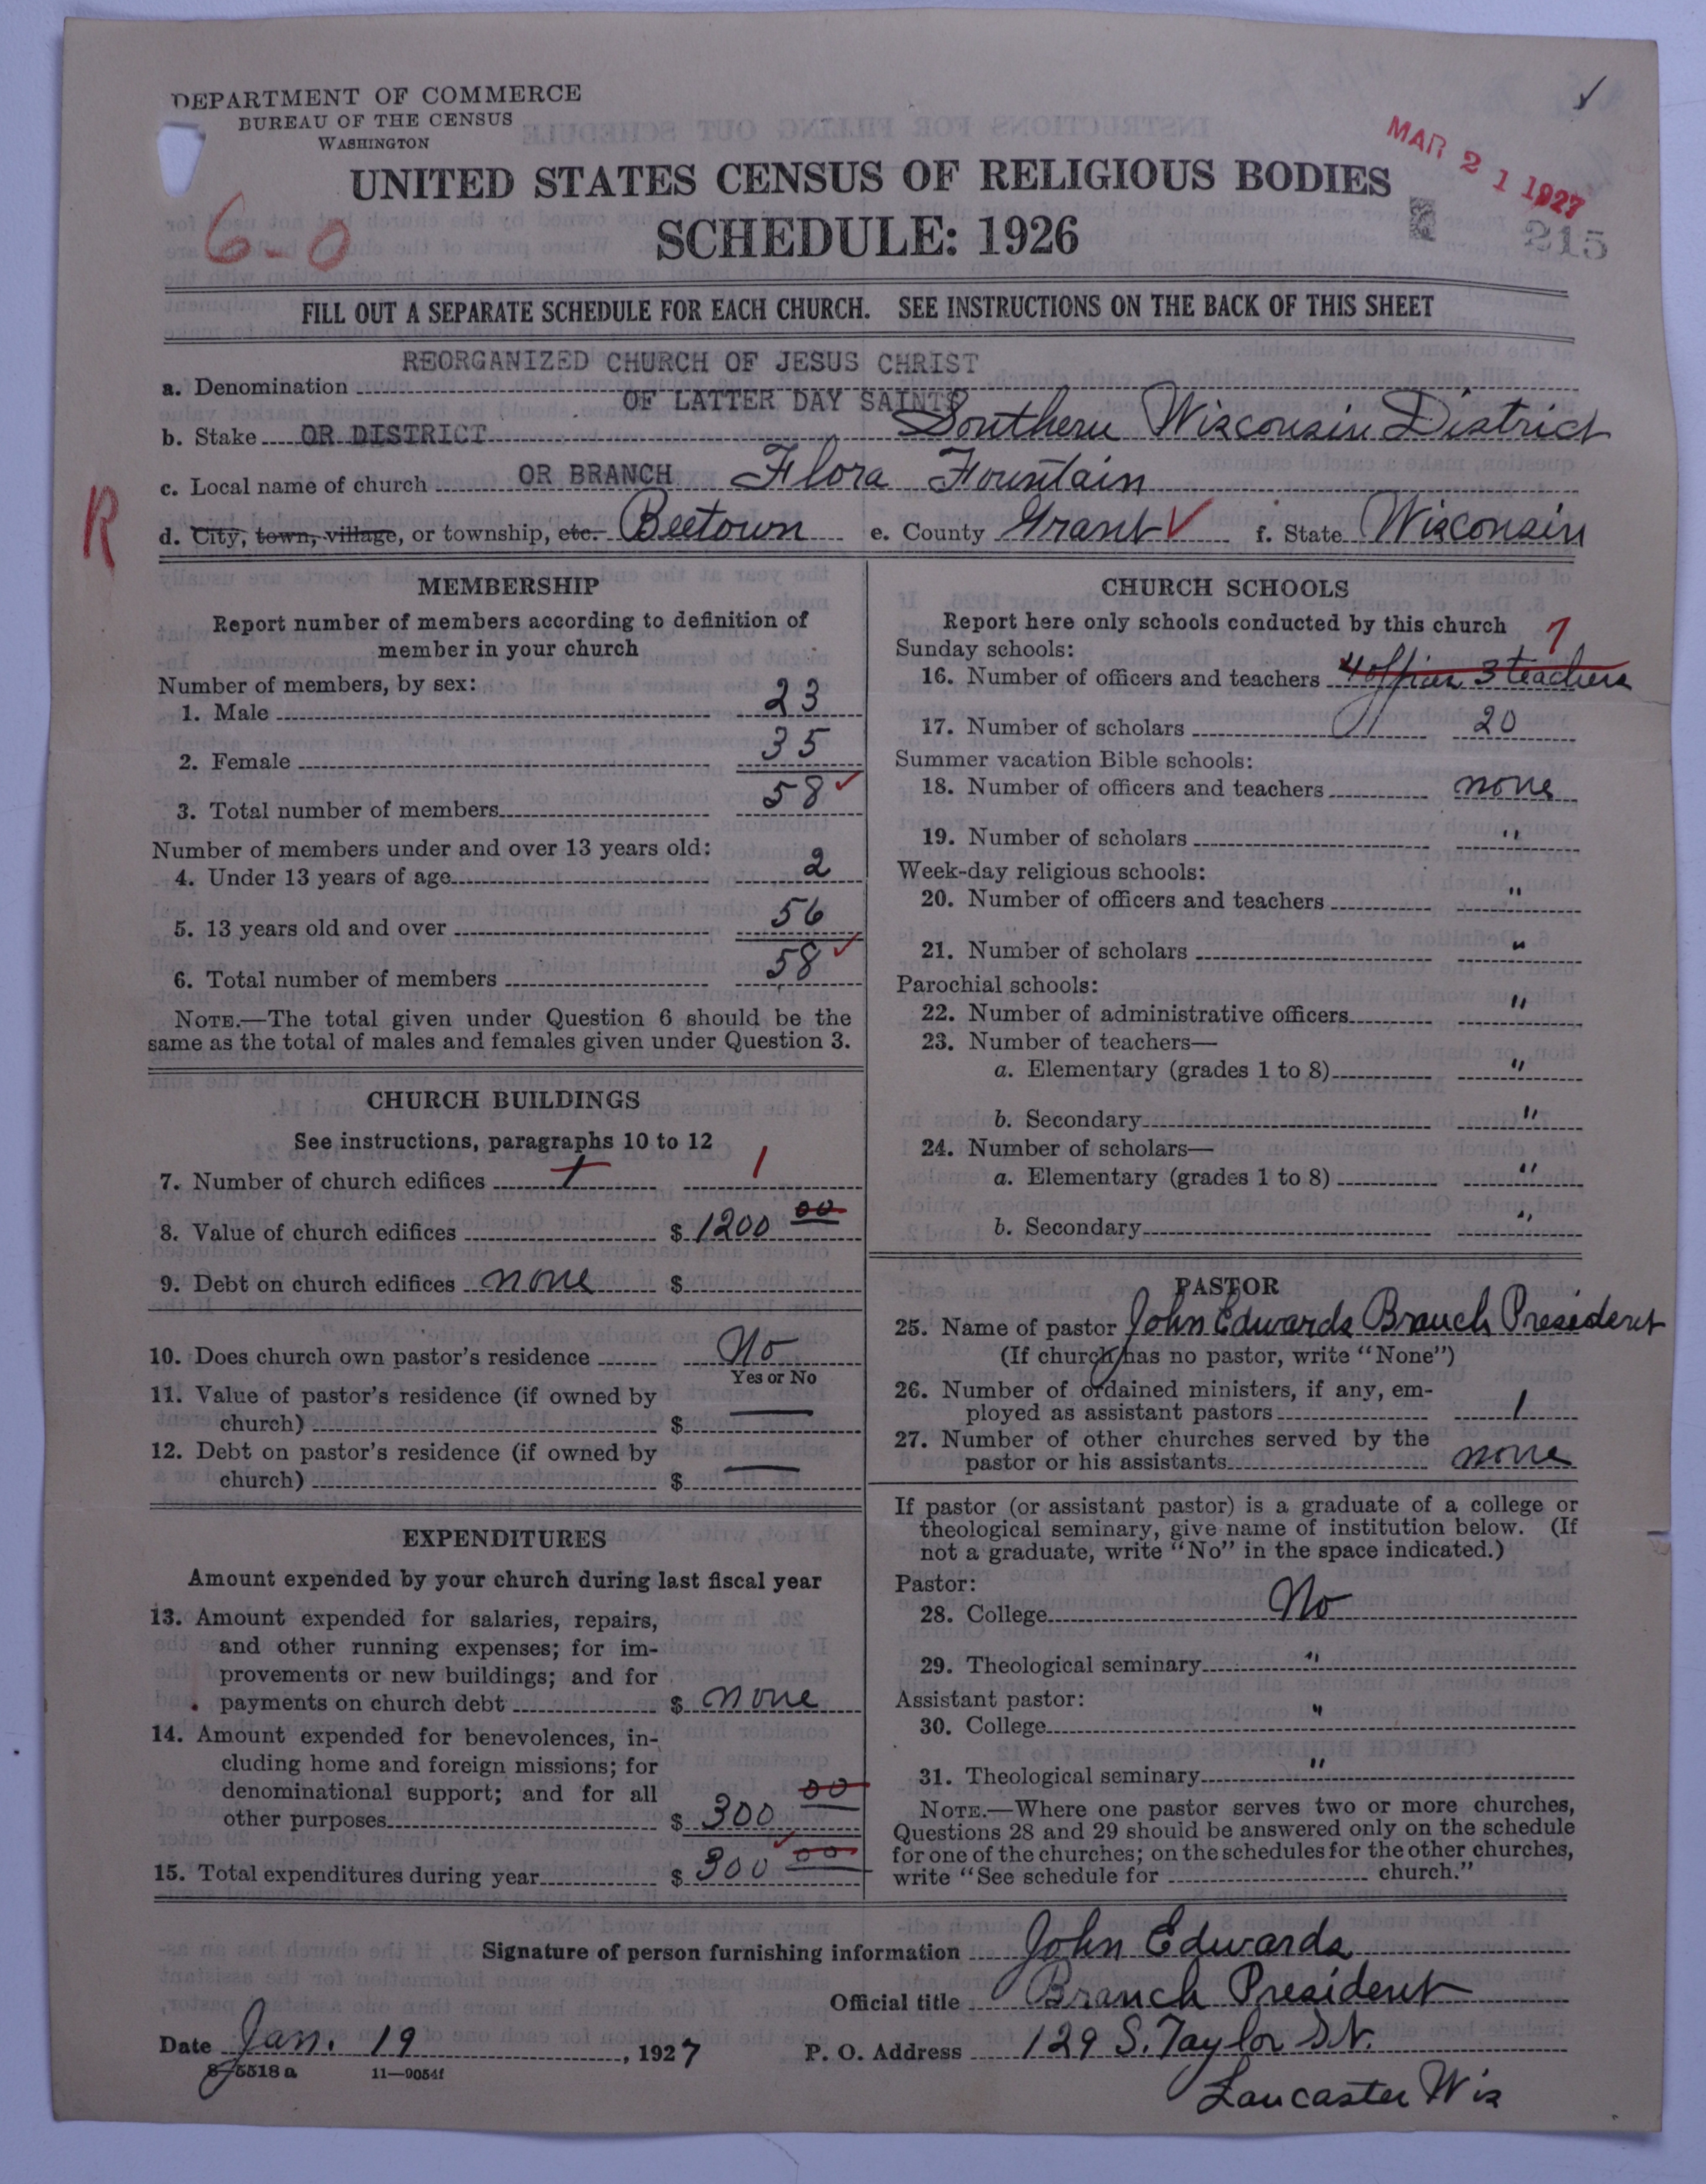 DEPARTMENT OF COMMERCE
BUREAU OF THE CENSUS
WASHINGTON
MAR 21 1927
UNITED STATES CENSUS OF RELIGIOUS BODIES
SCHEDULE: 1926
215
6-0
FILL OUT A SEPARATE SCHEDULE FOR EACH CHURCH. SEE INSTRUCTIONS ON THE BACK OF THIS SHEET
REORGANIZED CHURCH OF JESUS CHRIST
a. Denomination
OF LATTER DAY SAINTS
b. Stake OR DISTRICT Southern Wisconsin District
c. Local name of church OR BRANCH Flora Fountain
R
d. City, town, village, or township, etc. Beetown e. County Grant f. State Wisconsin
MEMBERSHIP
Report number of members according to definition of
member in your church
Number of members, by sex:
1. Male 23
2. Female 35
3. Total number of members 58
Number of members under and over 13 years old:
4. Under 13 years of age 2
5. 13 years old and over 56
6. Total number of members 58
NOTE.—The total given under Question 6 should be the
same as the total of males and females given under Question 3.
CHURCH BUILDINGS
See instructions, paragraphs 10 to 12
7. Number of church edifices 1 1
8. Value of church edifices $ 1200 00
9. Debt on church edifices none $
10. Does church own pastor's residence No
Yes or No
11. Value of pastor's residence (if owned by
church) $ —
12. Debt on pastor's residence (if owned by
church) $ —
EXPENDITURES
Amount expended by your church during last fiscal year
13. Amount expended for salaries, repairs,
and other running expenses; for im-
provements or new buildings; and for
payments on church debt $ none
14. Amount expended for benevolences, in-
cluding home and foreign missions; for
denominational support; and for all
other purposes $ 300 00
15. Total expenditures during year $ 300 00
CHURCH SCHOOLS
Report here only schools conducted by this church
Sunday schools: 7
16. Number of officers and teachers 4 officers 3 teachers
17. Number of scholars 20
Summer vacation Bible schools:
18. Number of officers and teachers none
19. Number of scholars "
Week-day religious schools:
20. Number of officers and teachers "
21. Number of scholars "
Parochial schools:
22. Number of administrative officers "
23. Number of teachers—
a. Elementary (grades 1 to 8) "
b. Secondary "
24. Number of scholars—
a. Elementary (grades 1 to 8) "
b. Secondary "
PASTOR
25. Name of pastor John Edwards Branch President
(If church has no pastor, write "None")
26. Number of ordained ministers, if any, em-
ployed as assistant pastors 1
27. Number of other churches served by the
pastor or his assistants none
If pastor (or assistant pastor) is a graduate of a college or
theological seminary, give name of institution below. (If
not a graduate, write "No" in the space indicated.)
Pastor:
28. College No
29. Theological seminary "
Assistant pastor:
30. College "
31. Theological seminary "
NOTE.—Where one pastor serves two or more churches,
Questions 28 and 29 should be answered only on the schedule
for one of the churches; on the schedules for the other churches,
write "See schedule for church."
Signature of person furnishing information John Edwards
Official title Branch President
Date Jan. 19, 1927 P. O. Address 129 S. Taylor St.
8-5518 a 11-9054f
Lancaster Wis